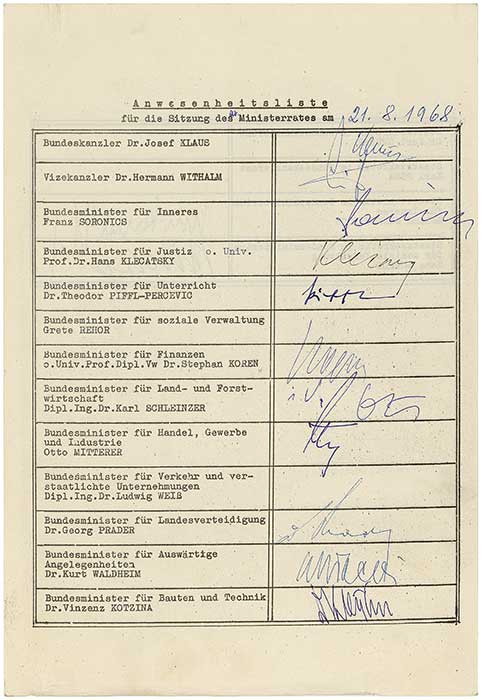 Anwesenheitsliste
für die Sitzung des Ministerrates am 21.8.1968
Bundeskanzler Dr.Josef KLAUS
Vizekanzler Dr.Hermann WITHALM
Bundesminister für Inneres
Franz SORONICS
Bundesminister für Justiz o. Univ.
Prof.Dr.Hans KLECATSKY
Bundesminister für Unterricht
Dr.Theodor PIFFL-PERCEVIC
Bundesminister für soziale Verwaltung
Grete REHOR
Bundesminister für Finanzen
o.Univ.Prof.Dipl.Vw Dr.Stephan KOREN
Bundesminister für Land- und Forst-
wirtschaft
Dipl.Ing.Dr.Karl SCHLEINZER
i.V.
Bundesminister für Handel, Gewerbe
und Industrie
Otto MITTERER
Bundesminister für Verkehr und ver-
staatlichte Unternehmungen
Dipl.Ing.Dr.Ludwig WEIß
Bundesminister für Landesverteidigung
Dr.Georg PRADER
Bundesminister für Auswärtige
Angelegenheiten
Dr.Kurt WALDHEIM
Bundesminister für Bauten und Technik
Dr.Vinzenz KOTZINA